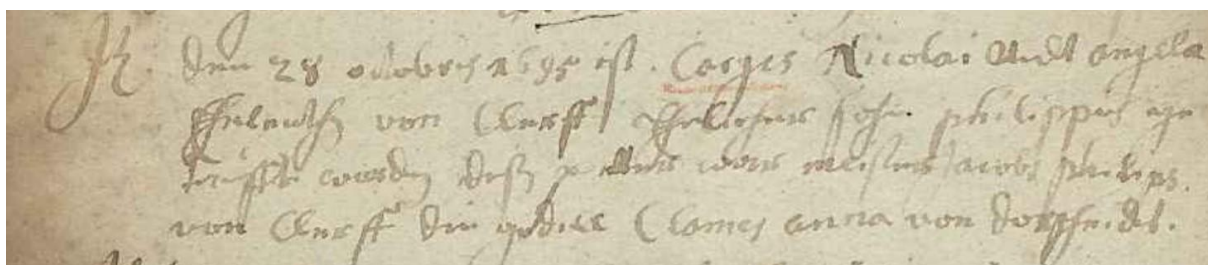 den 28 octobris 1695 ist. Casper Nicolai undt angela
Eheleuth von Clerff Ehelicher sohn philippus ge
taufft worden deß patter wore meister philips.
von Clerff die goddell Clames anna von dorscheidt.